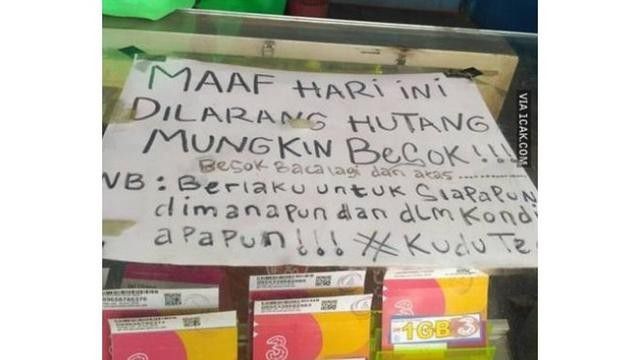 MAAF HARI INI
DILARANG HUTANG
MUNGKIN BEGOK!!!
BESOK BACA lagi dari atas..................
NB : BERlaku untuk SIAPAPUN
dimanapun dan dlm Kondi
apapun!!! #KuduTe
VIA 1CAK.COM
3
3
3
1GB 3